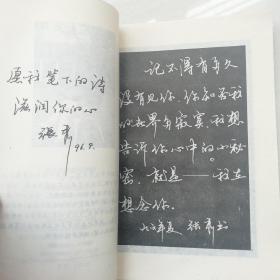 愿我笔下的诗
滋润你的心
张
96.9.
记不得有多久
没有见你,你知否我
的世界多寂寞,我想
告诉你心中的小秘
密,就是——我在
想念你。
张 书